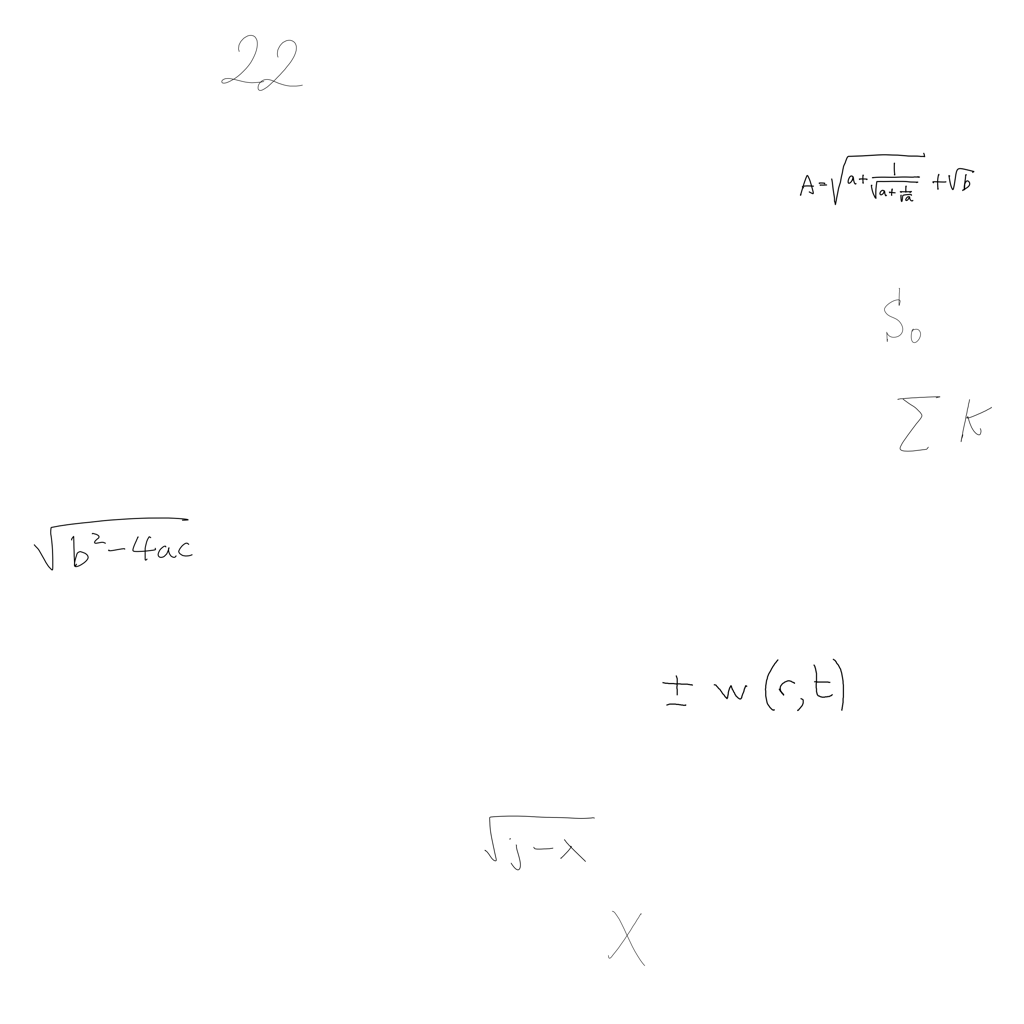 22
A = \sqrt{a + \frac{1}{\sqrt{a + \frac{1}{\sqrt{a}}}}} + \sqrt{b}
S_0
\sum K
\sqrt{b^2 - 4ac}
\pm w(r, t)
\sqrt{j - \lambda}
X